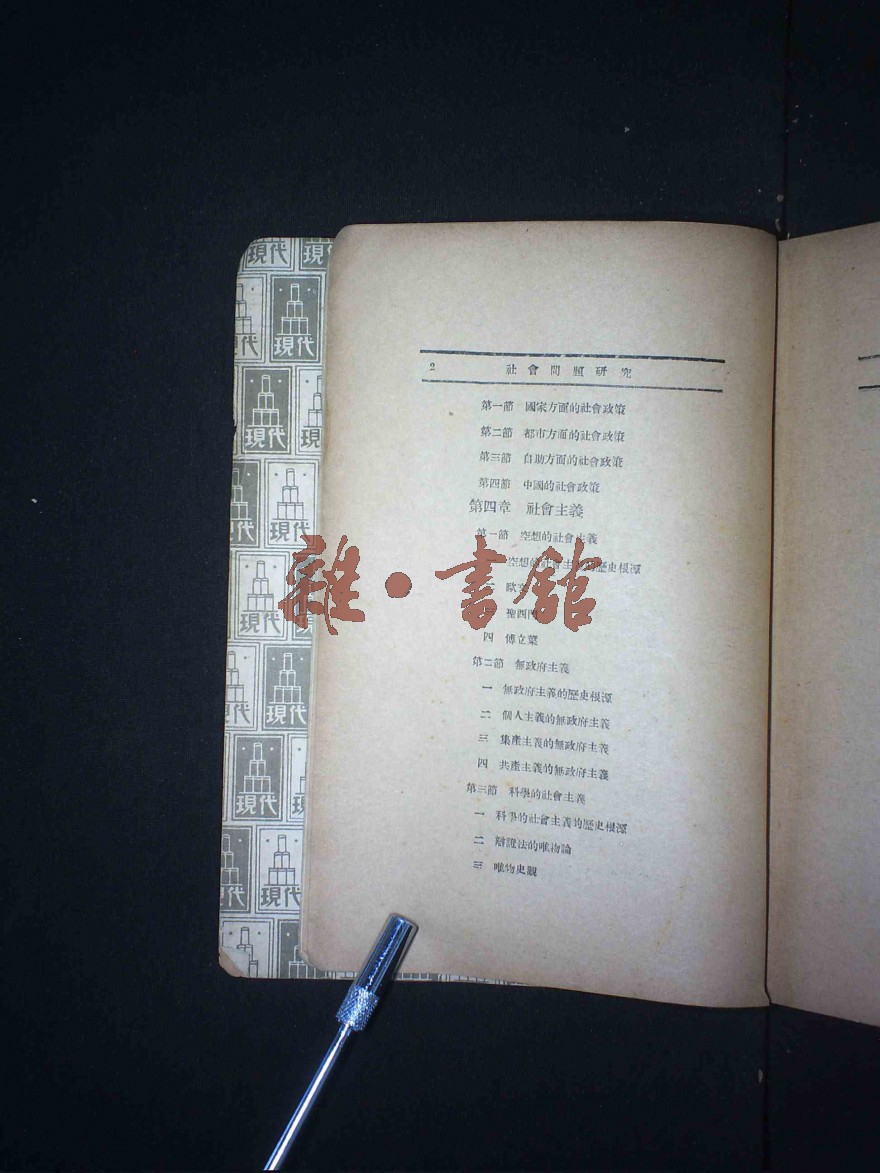 2 社會問題研究
第一節 國家方面的社會政策
第二節 都市方面的社會政策
第三節 自助方面的社會政策
第四節 中國的社會政策
第四章 社會主義
第一節 空想的社會主義
空想的社會主義的歷史根源
歐
聖西門
四 傅立葉
第二節 無政府主義
一 無政府主義的歷史根源
二 個人主義的無政府主義
三 集產主義的無政府主義
四 共產主義的無政府主義
第三節 科學的社會主義
一 科學的社會主義的歷史根源
二 辯證法的唯物論
三 唯物史觀
雜·書館
現代
現代
現代
現代
現代
現代
現代
現代
現代